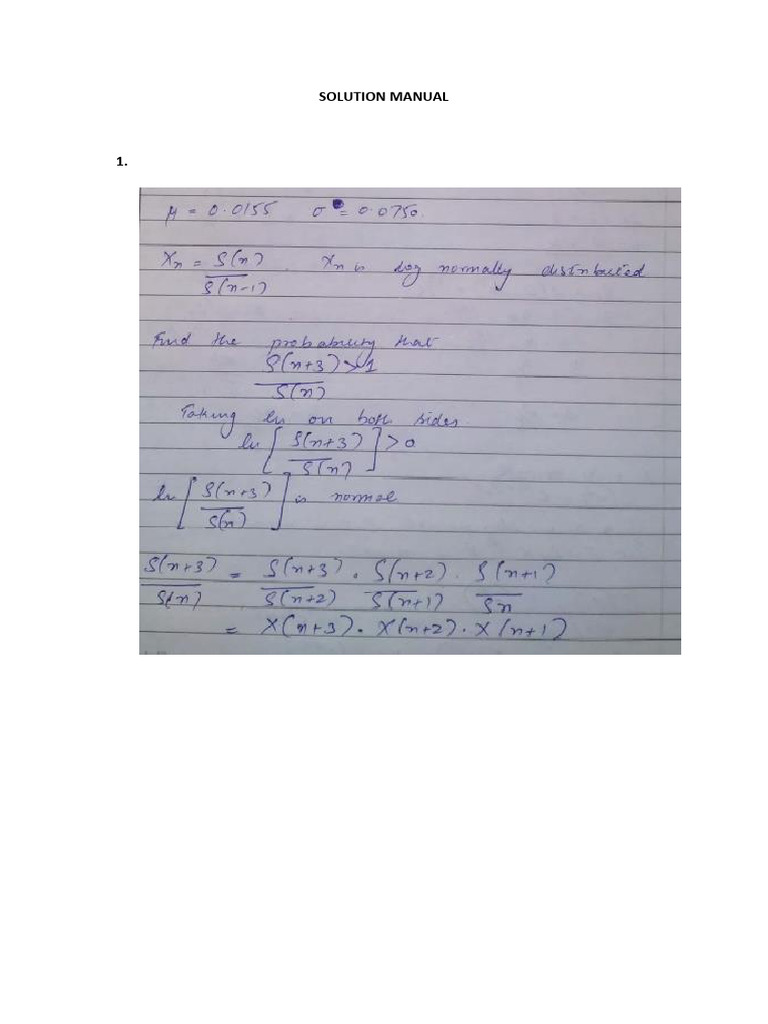 SOLUTION MANUAL
1.
μ = 0.0155 σ = 0.0750.
Xn = S(n)/S(n-1). Xn is log normally distributed
Find the probability that
S(n+3)/S(n) > 1
Taking ln on both sides.
ln [S(n+3)/S(n)] > 0
ln [S(n+3)/S(n)] is normal
S(n+3)/S(n) = S(n+3)/S(n+2) . S(n+2)/S(n+1) . S(n+1)/Sn
= X(n+3) . X(n+2) . X(n+1)